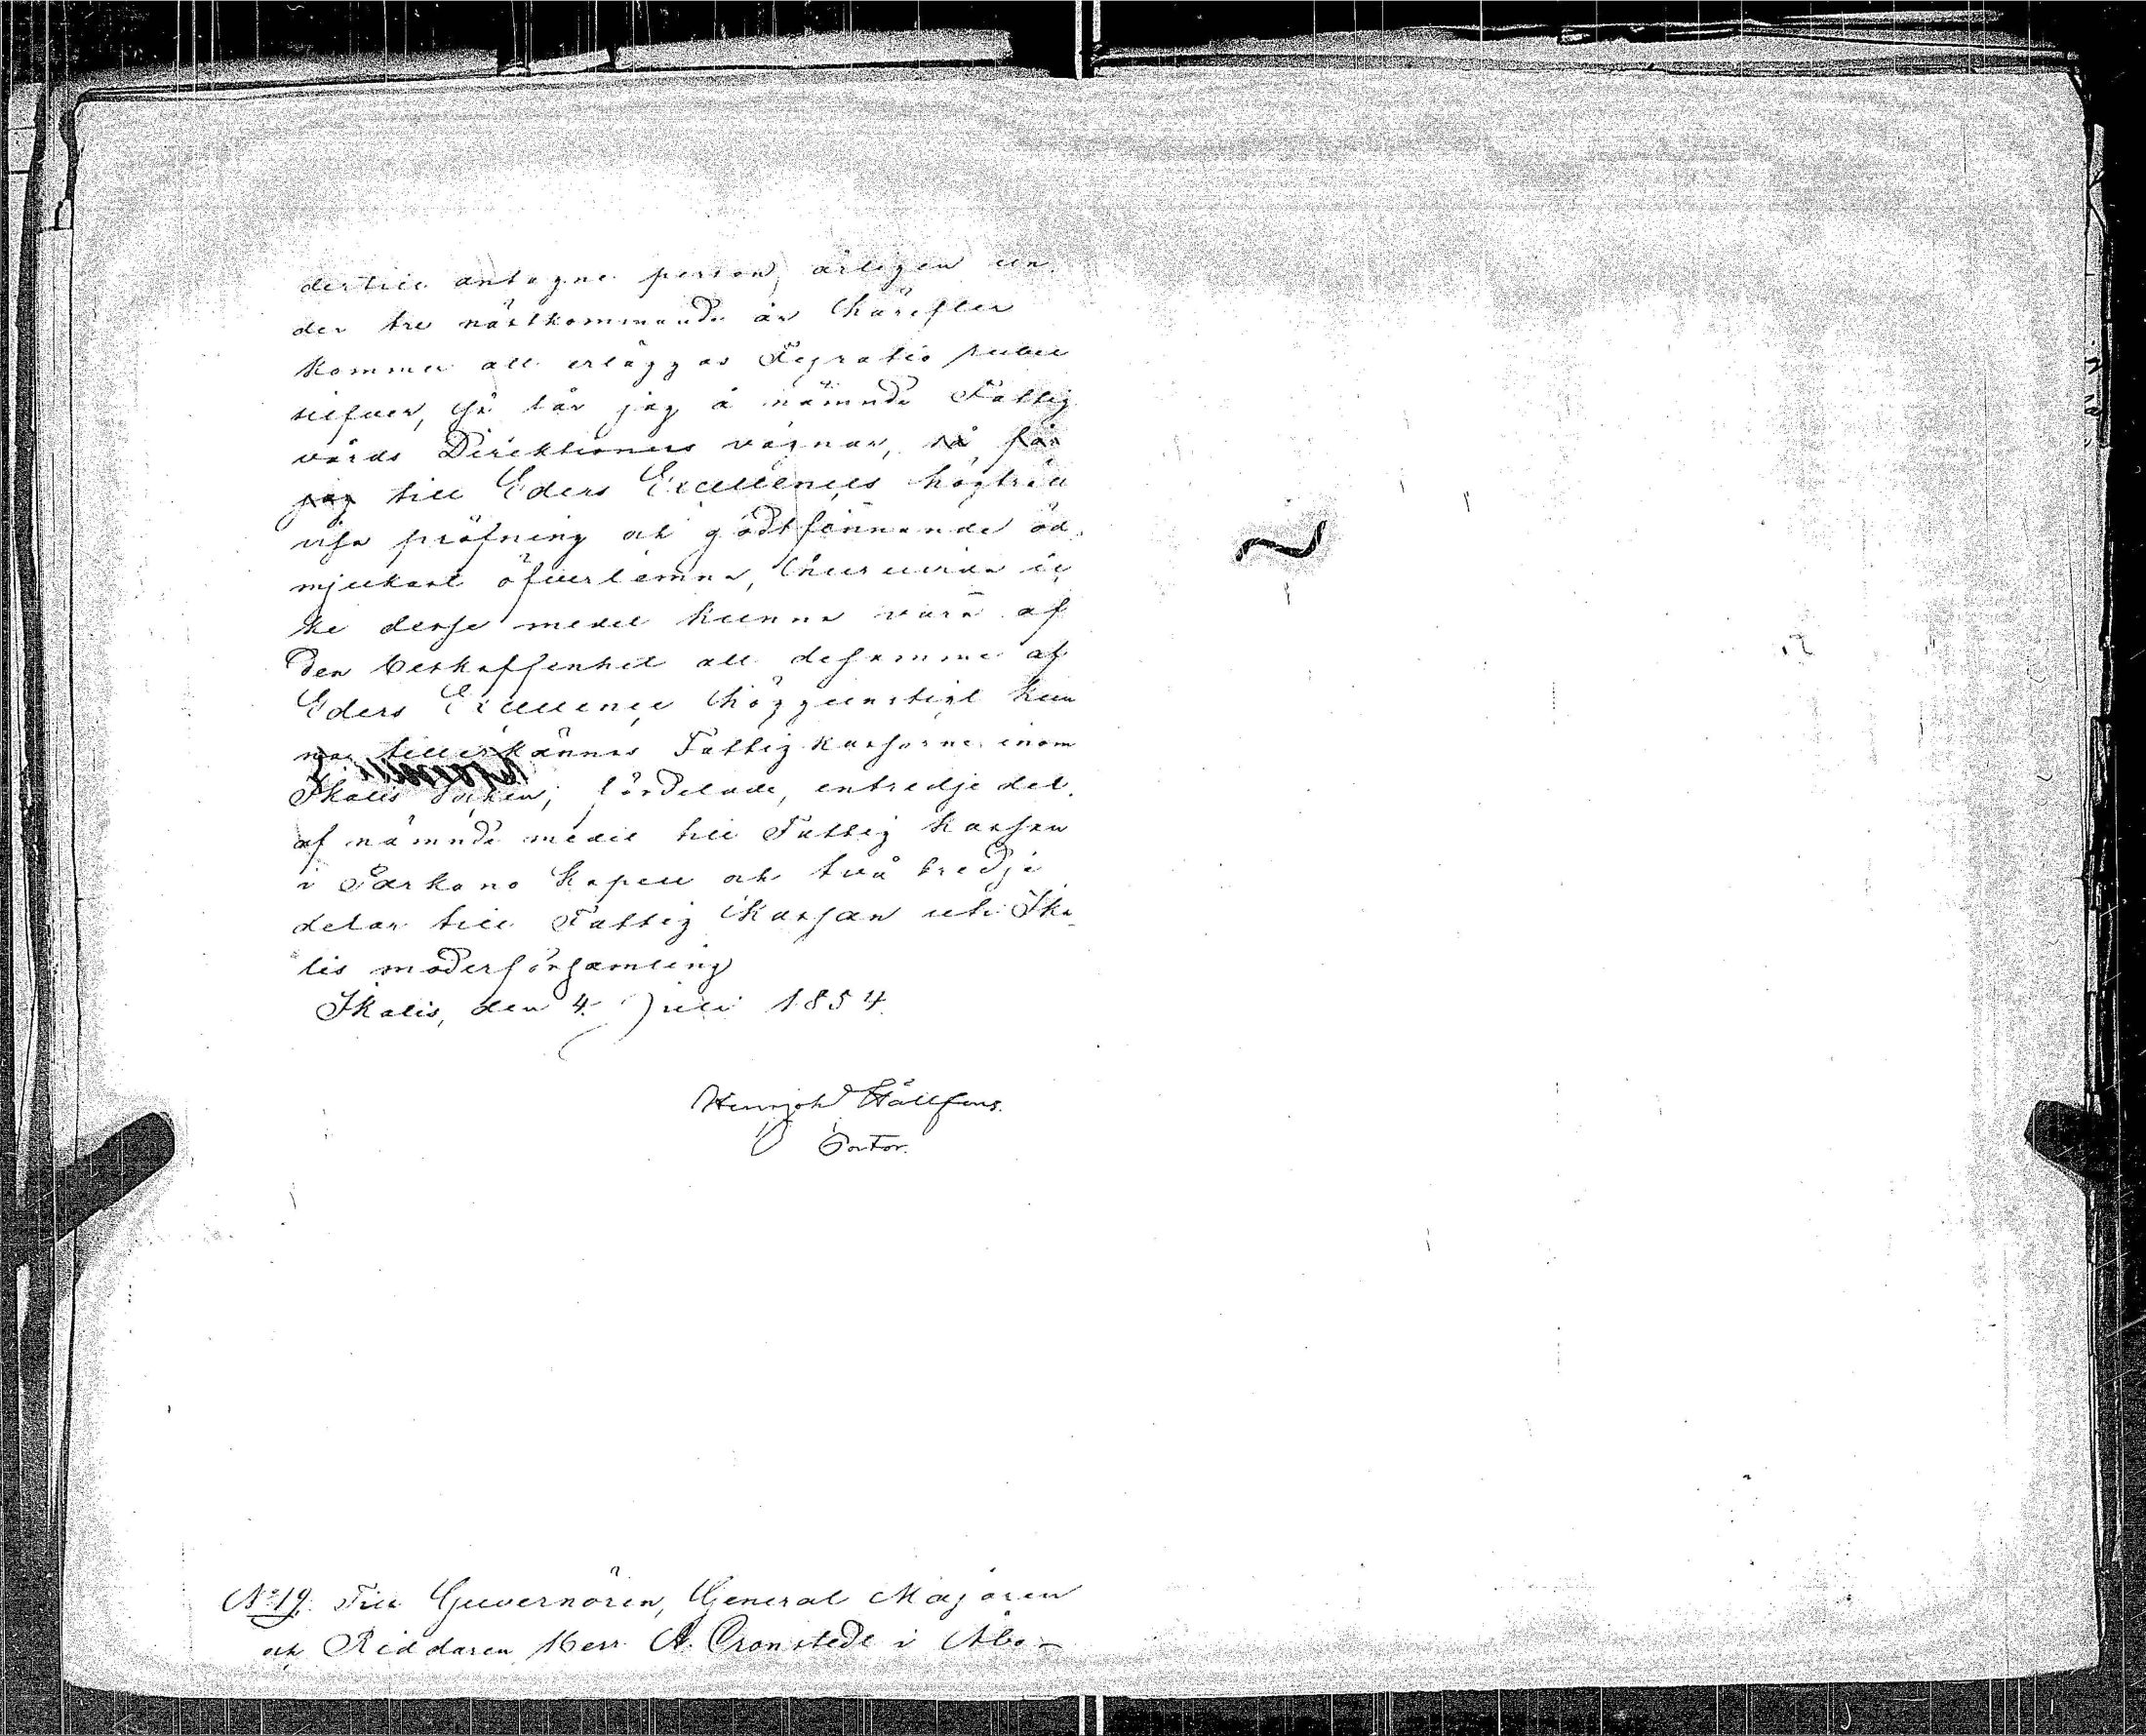 dertill antagne person, årligen un-
der tre nästkommande år härefter
kommer att erläggas Fyratio rubel
silfver, så får jag å nämnde Fattig
vårds Direktionens vägnar, så får
jag till Eders Excellences högträd
visa pröfning och godtfinnande öd-
mjukast öfverlemna, huruvida ic
ke desse medel kunna vara af
den beskaffenhet att desamme af
Eders Excellence höggunstigt kun
na tillerkännas Fattigkassorne inom
Ikalis Socken, fördelade, entredje del
af nämnde medel till Fattig kassan
i Parkano kapell och två tredje
delar till Fattig kassan uti Ika-
lis moderförsamling
Ikalis, den 4. Juli 1854.
Hällfors.
Pastor.
No 19. Till Guvernören, General Majoren
och Riddaren Herr A. Cronstedt i Åbo –